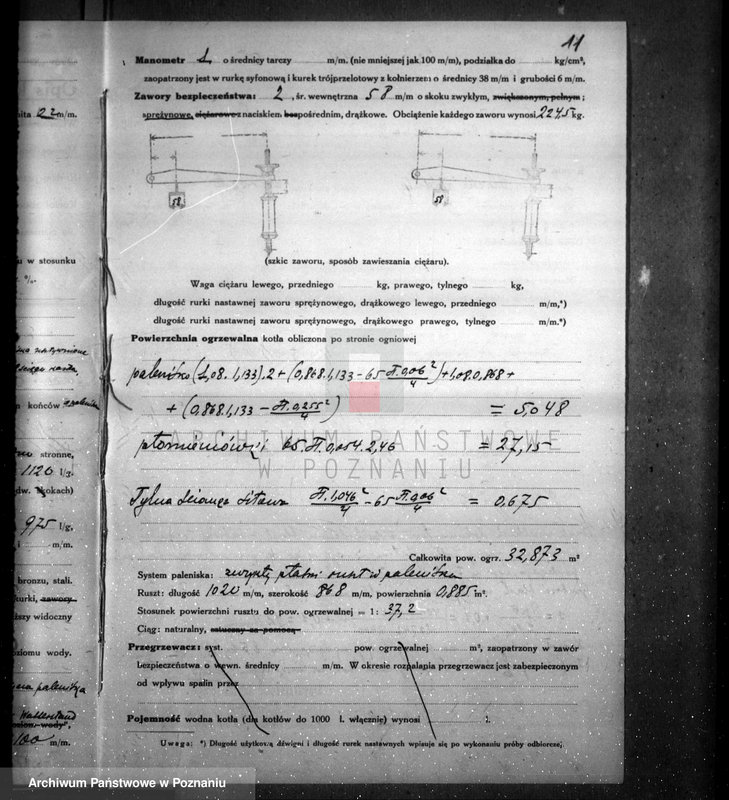 11
Manometr 1 o średnicy tarczy m/m. (nie mniejszej jak 100 m/m), podziałka do kg/cm²,
zaopatrzony jest w rurkę syfonową i kurek trójprzelotowy z kołnierzem o średnicy 38 m/m i grubości 6 m/m.
Zawory bezpieczeństwa: 2, śr. wewnętrzna 58 m/m o skoku zwykłym, zwiększonym, pełnym;
sprężynowe, ciężarowe z naciskiem bezpośrednim, drążkowe. Obciążenie każdego zaworu wynosi 224,5 kg.
58 58
(szkic zaworu, sposób zawieszania ciężaru).
Waga ciężaru lewego, przedniego kg, prawego, tylnego kg,
długość rurki nastawnej zaworu sprężynowego, drążkowego lewego, przedniego m/m,*)
długość rurki nastawnej zaworu sprężynowego, drążkowego prawego, tylnego m/m.*)
Powierzchnia ogrzewalna kotła obliczona po stronie ogniowej
palenisko (1,08. 1,133).2 + (0,868.1,133 - 65 π.0,06²/4) + 1,08.0,868 +
+ (0,868.1,133 - π.0,255²/4) = 5,048
ARCHIWUM PAŃSTWOWE
płomieniówki 65.π.0,054.2,46 = 27,15
W POZNANIU
Tylna ściana sitowa π.1,046²/4 - 65 π.0,06²/4 = 0,675
Całkowita pow. ogrz. 32,873 m²
System paleniska: zwykły płaski ruszt w palenisku
Ruszt: długość 1020 m/m, szerokość 868 m/m, powierzchnia 0,885 m².
Stosunek powierzchni rusztu do pow. ogrzewalnej = 1: 37,2
Ciąg: naturalny, sztuczny za pomocą
Przegrzewacz: syst. pow. ogrzewalnej m², zaopatrzony w zawór
bezpieczeństwa o wewn. średnicy m/m. W okresie rozpalania przegrzewacz jest zabezpieczonym
od wpływu spalin przez
Pojemność wodna kotła (dla kotłów do 1000 l. włącznie) wynosi l.
Uwaga: *) Długość użytkową dźwigni i długość rurek nastawnych wpisuje się po wykonaniu próby odbiorczej.
m/m.
u w stosunku
%.
końców
stronne,
1120 l/g.
dw. skokach)
975 l/g,
i m/m.
bronzu, stali.
zawory
ższy widoczny
oziomu wody.
100 m/m.
Archiwum Państwowe w Poznaniu